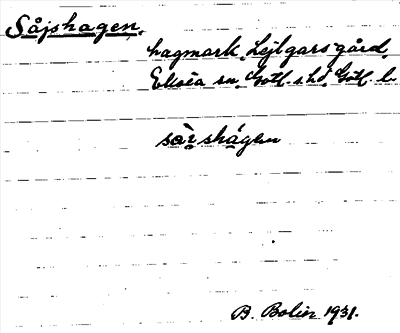 Såjshagen.
hagmark, Lejlgarsgård,
Elseia sn, Gotl. s. hd, Gotl. l.
sàʒshágen
B. Bolin 1931.